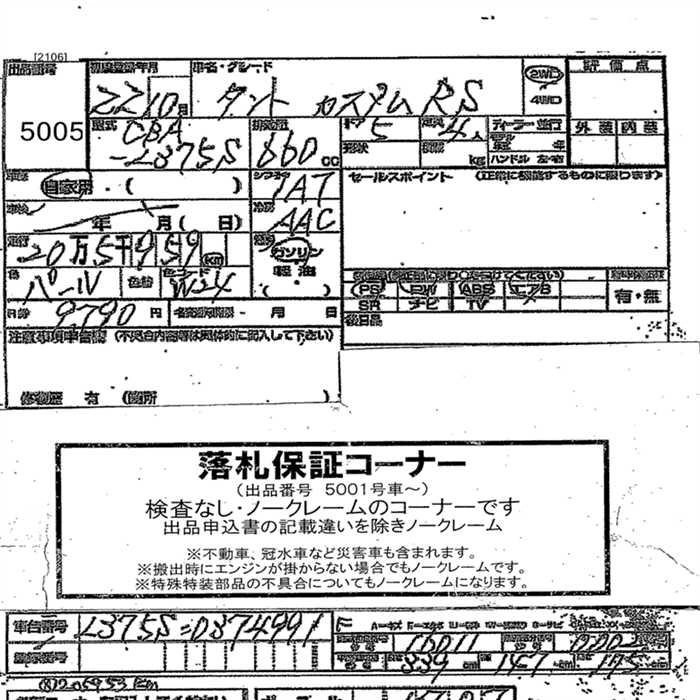 [2106]
出品番号 初度登録年月 車名・グレード 2WD 評価点
5005 22 10月 タント カスタム RS 4WD
型式 CBA 排気量 ドア 5 定員 4人 ディーラー 並行 外装 内装
-L375S 660cc 形状 kg ハンドル 左・右 年
車歴 自家用・( ) シフト IAT セールスポイント (正常に機能するものに限ります)
車検 年 月( 日) 冷房 AAC
走行 20万5千959km 燃料 ガソリン
色 パール 色替 色コード W24 軽油
・
( )
PS PW ABS エアB 有・無
SR ナビ TV
R券 9,790円 名義変更期限 - 月 日 後日品
注意事項申告欄 (不具合内容等は具体的に記入して下さい)
修復歴 有 (箇所 )
落札保証コーナー
(出品番号 5001号車~)
検査なし・ノークレームのコーナーです
出品申込書の記載違いを除きノークレーム
※不動車、冠水車など災害車も含まれます。
※搬出時にエンジンが掛からない場合でもノークレームです。
※特殊特装部品の不具合についてもノークレームになります。
車台番号 L375S-0374991
登録番号 339cm 147cm 175cm